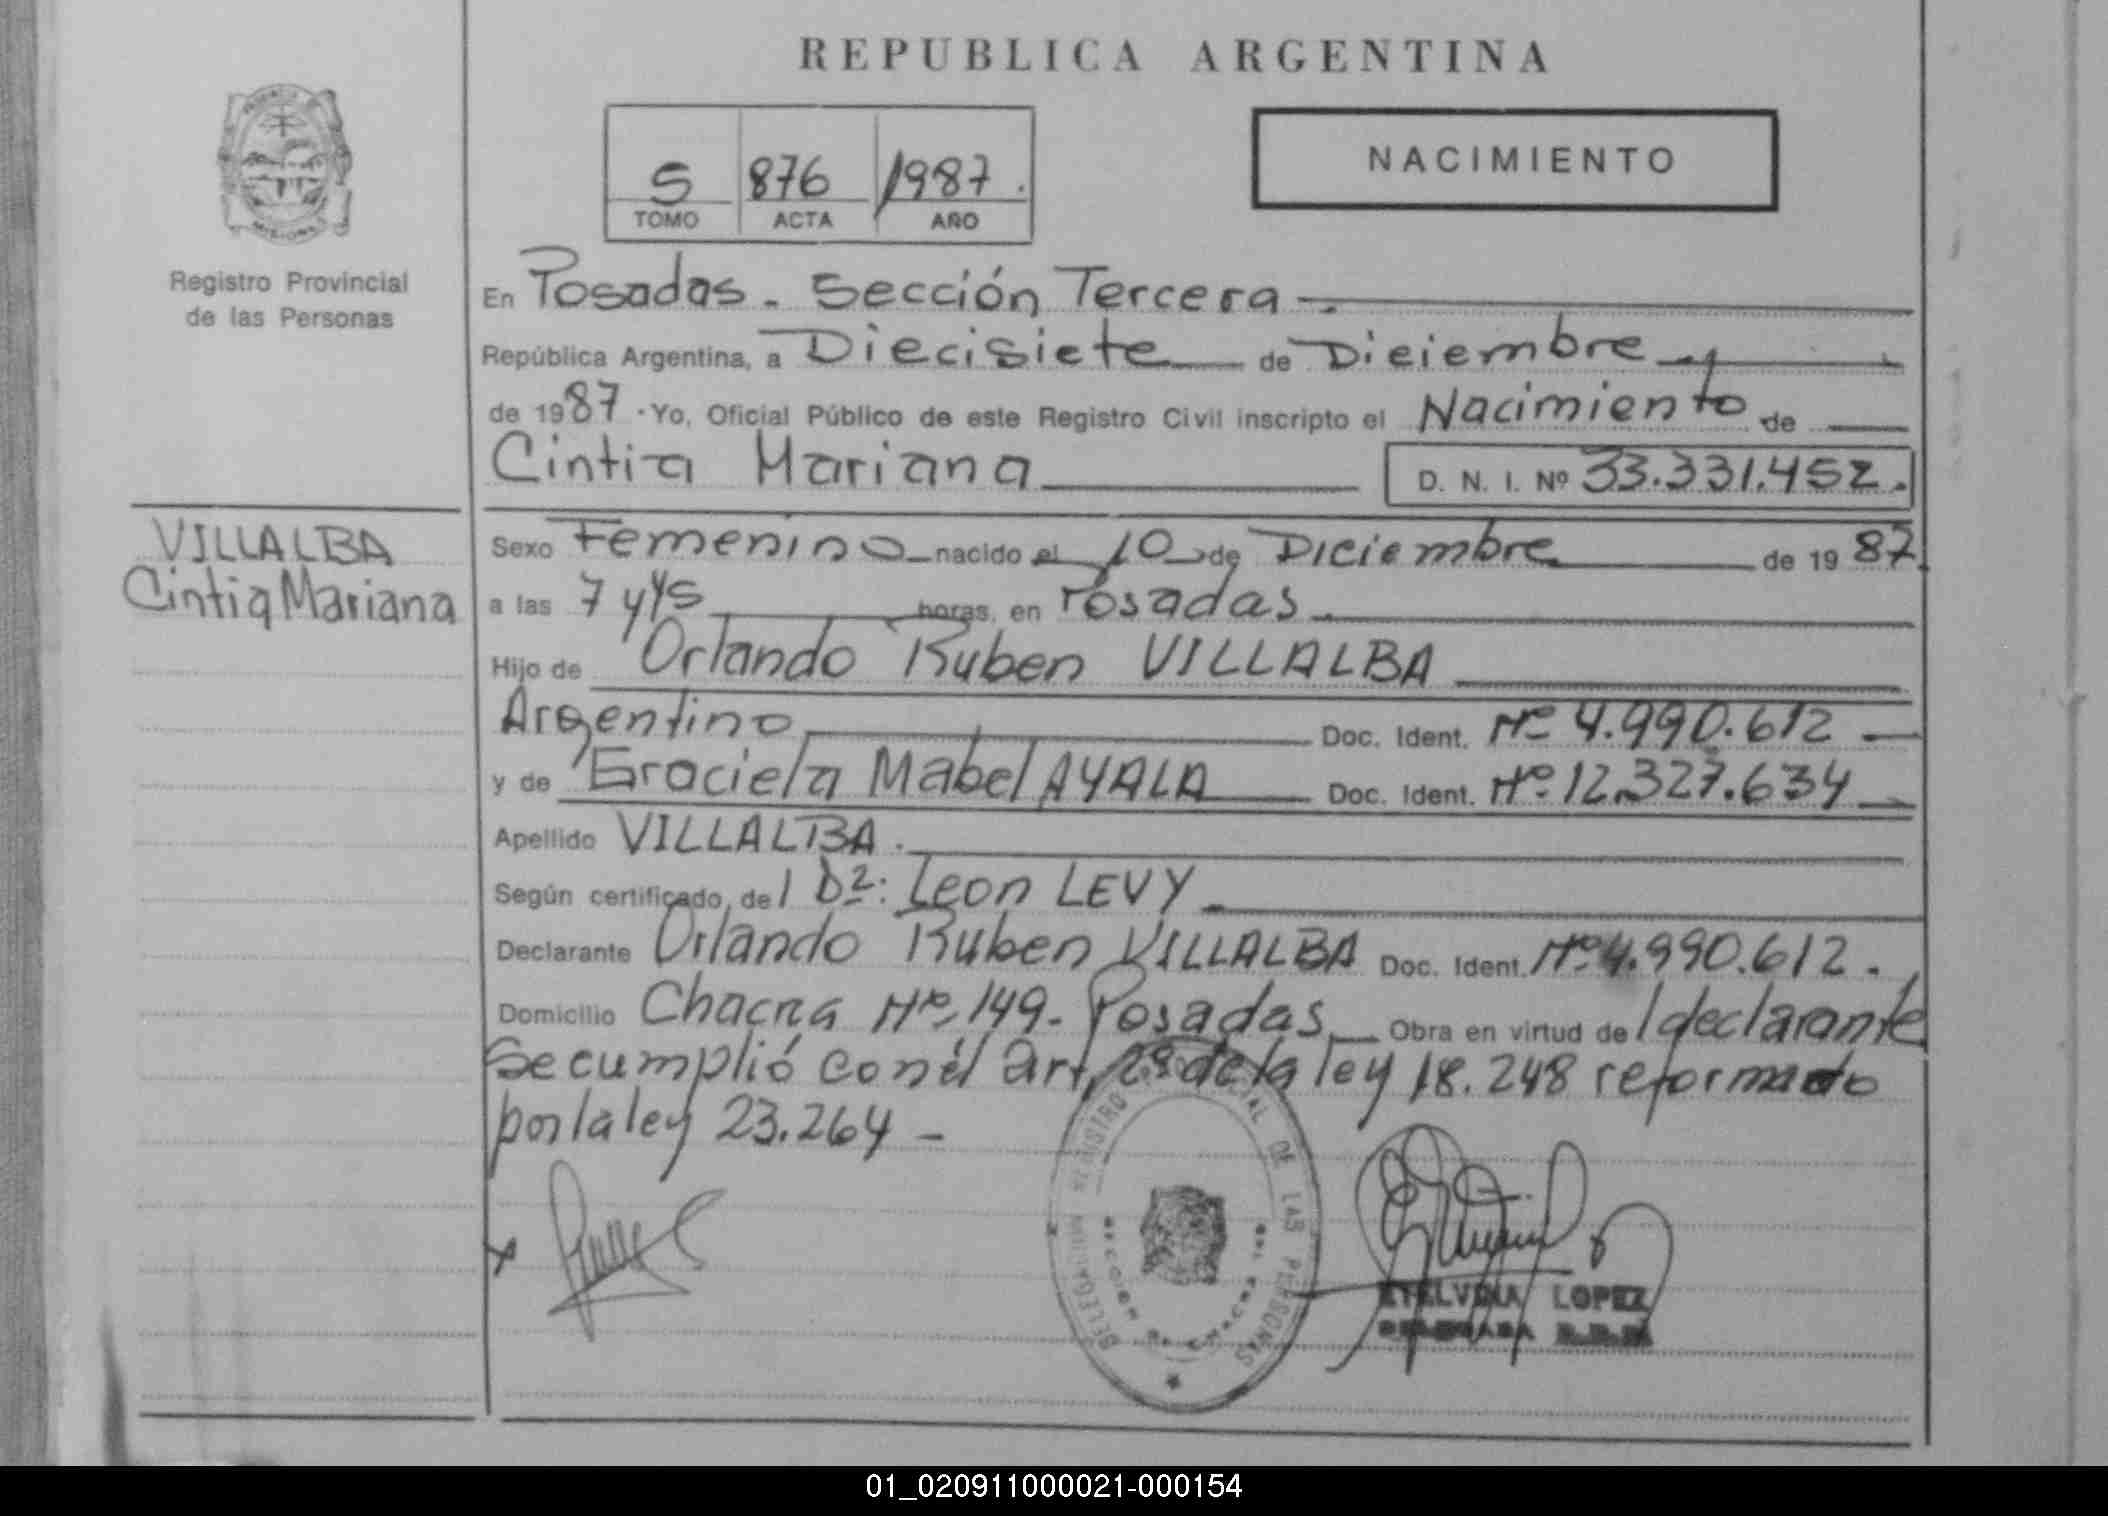 REPUBLICA ARGENTINA
PROVINCIA DE
MISIONES
Registro Provincial
de las Personas
5 876 1987.
TOMO ACTA AÑO
NACIMIENTO
En Posadas. Sección Tercera
República Argentina, a Diecisiete de Diciembre
de 1987. Yo, Oficial Público de este Registro Civil inscripto el Nacimiento de
Cintia Mariana D. N. I. Nº 33.331.452.
VILLALBA
Cintia Mariana
Sexo Femenino nacido el 10 de Diciembre de 1987
a las 7 y 45 horas, en Posadas.
Hijo de Orlando Ruben VILLALBA
Argentino Doc. Ident. Nº 4.990.612
y de Graciela Mabel AYALA Doc. Ident. Nº 12.327.634
Apellido VILLALBA.
Según certificado, del Dr: Leon LEVY
Declarante Orlando Ruben VILLALBA Doc. Ident. Nº 4.990.612.
Domicilio Chacra Nº 149. Posadas. Obra en virtud del declarante
Se cumplió con el art. de la ley 18.248 reformado
por la ley 23.264 -
REGISTRO PROVINCIAL DE LAS PERSONAS
DELEGA
SECCION
CHACRA
x
LOPEZ
01_020911000021-000154